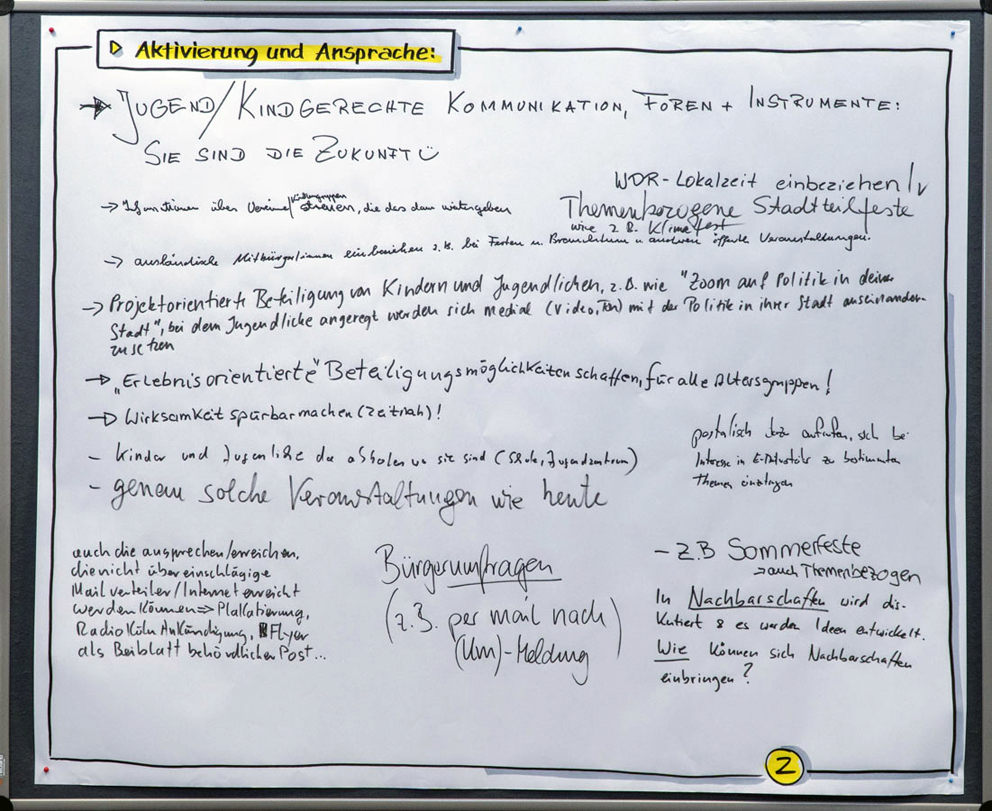 Aktivierung und Ansprache:
→ JUGEND/KINDGERECHTE KOMMUNIKATION, FOREN + INSTRUMENTE:
SIE SIND DIE ZUKUNFT
WDR-Lokalzeit einbeziehen!
Themenbezogene Stadtteilfeste
wie z.B. Klimafest
→ Informationen über Vereine/ streuen, die das dann weitergeben
→ ausländische Mitbürger/innen einbeziehen z.B. bei Festen u. Brauchtum u anderen öffentl. Veranstaltungen.
→ Projektorientierte Beteiligung von Kindern und Jugendlichen, z.B. wie "Zoom auf Politik in deiner
Stadt", bei dem Jugendliche angeregt werden sich medial (Video, Ton) mit der Politik in ihrer Stadt auseinander-
zusetzen
→ „Erlebnisorientierte" Beteiligungsmöglichkeiten schaffen, für alle Altersgruppen!
→ Wirksamkeit spürbar machen (zeitnah)!
- Kinder und Jugenliche da abholen wo sie sind (Schule, Jugendzentrum)
- genau solche Veranstaltungen wie heute
postalisch dazu aufrufen, sich bei
Interesse in E-Mail zu bestimmten
Themen eintragen
auch die ansprechen/erreichen,
die nicht über einschlägige
Mailverteiler/Internet erreicht
werden können => Plakatierung,
Radio Köln Ankündigung, Flyer
als Beiblatt behördlicher Post...
Bürgerumfragen
(z.B. per mail nach
(Um)-Meldung)
- z.B Sommerfeste
→ auch Themenbezogen
In Nachbarschaften wird dis-
kutiert & es werden Ideen entwickelt.
Wie können sich Nachbarschaften
einbringen?
2